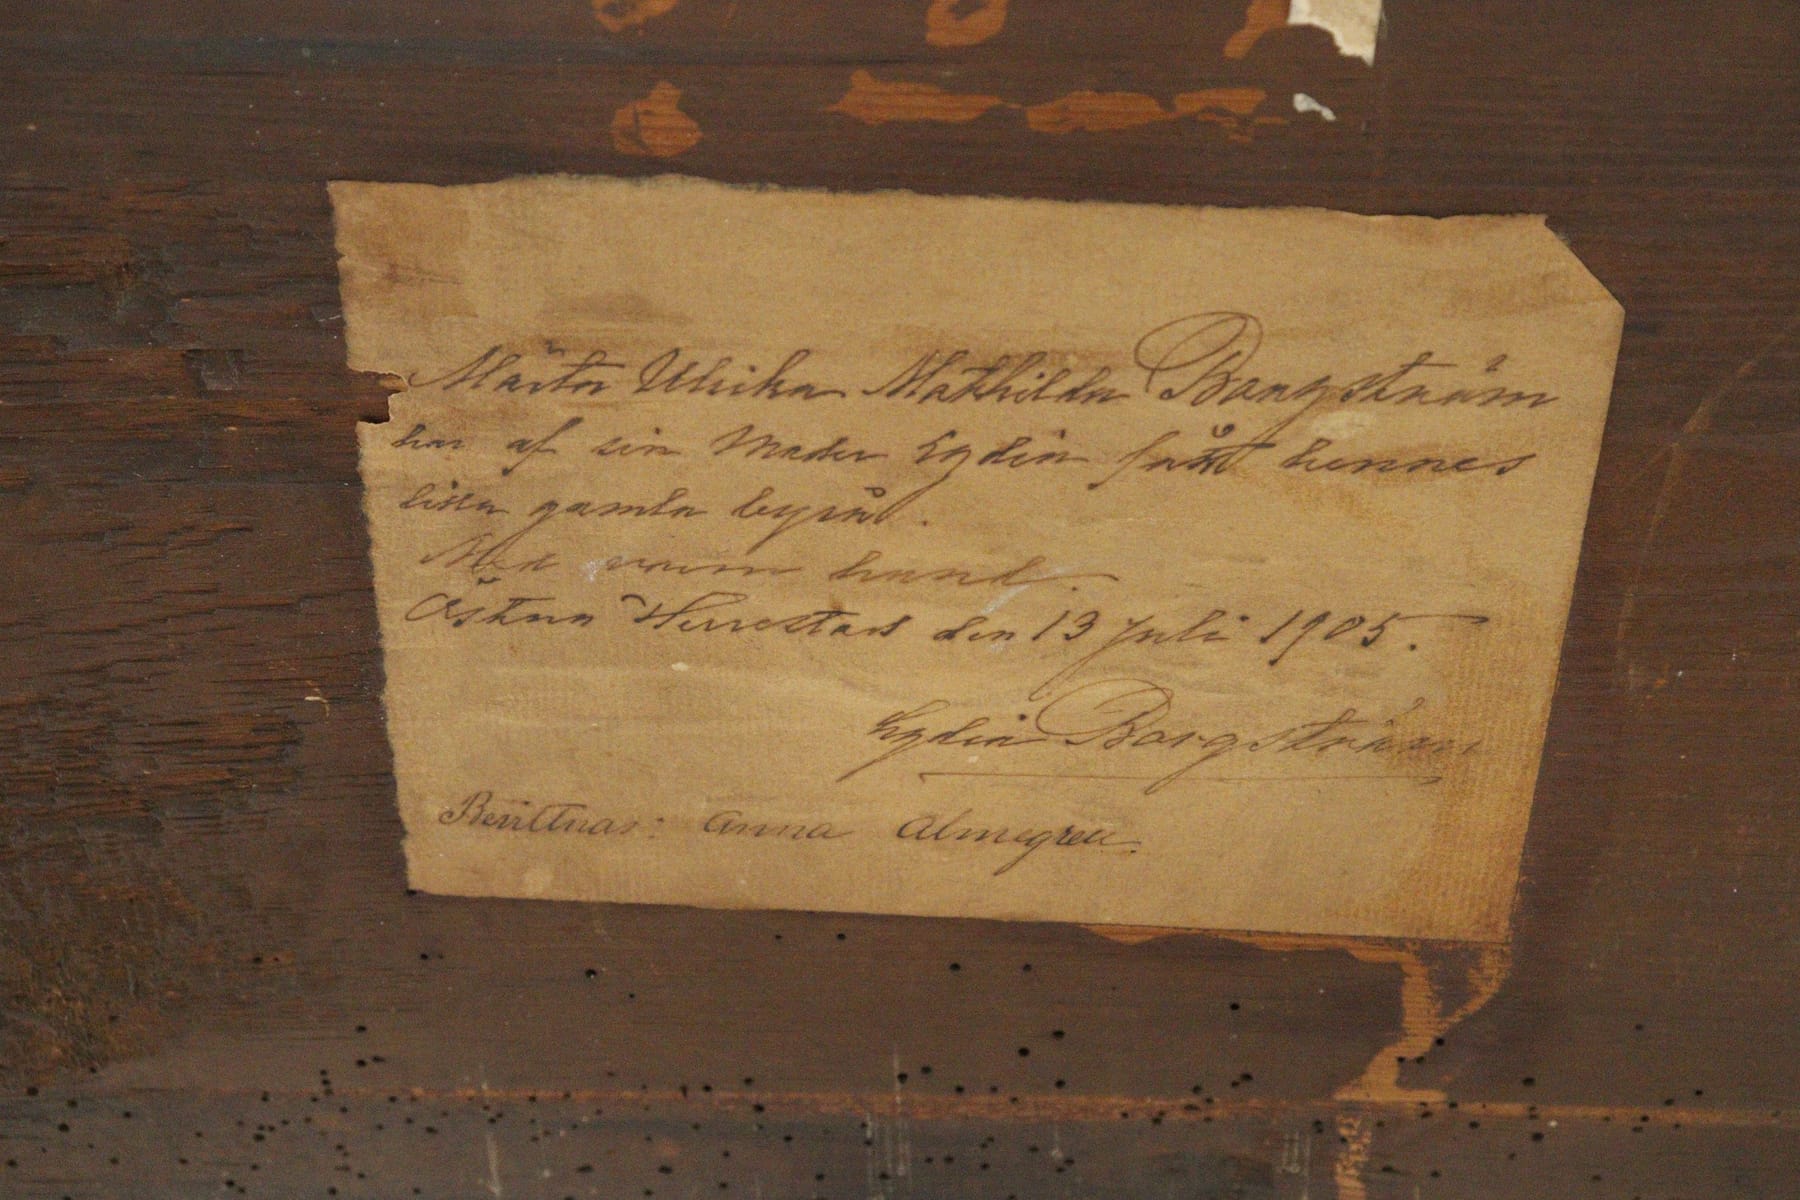 Märta Ulrika Mathilda Borgström
har af sin Moder Lydia fått hennes
lilla gamla byrå.
Med varm hand.
Östra Herrestad den 13 Juli 1905.
Lydia Borgström
Bevittnas: Anna Almegren.